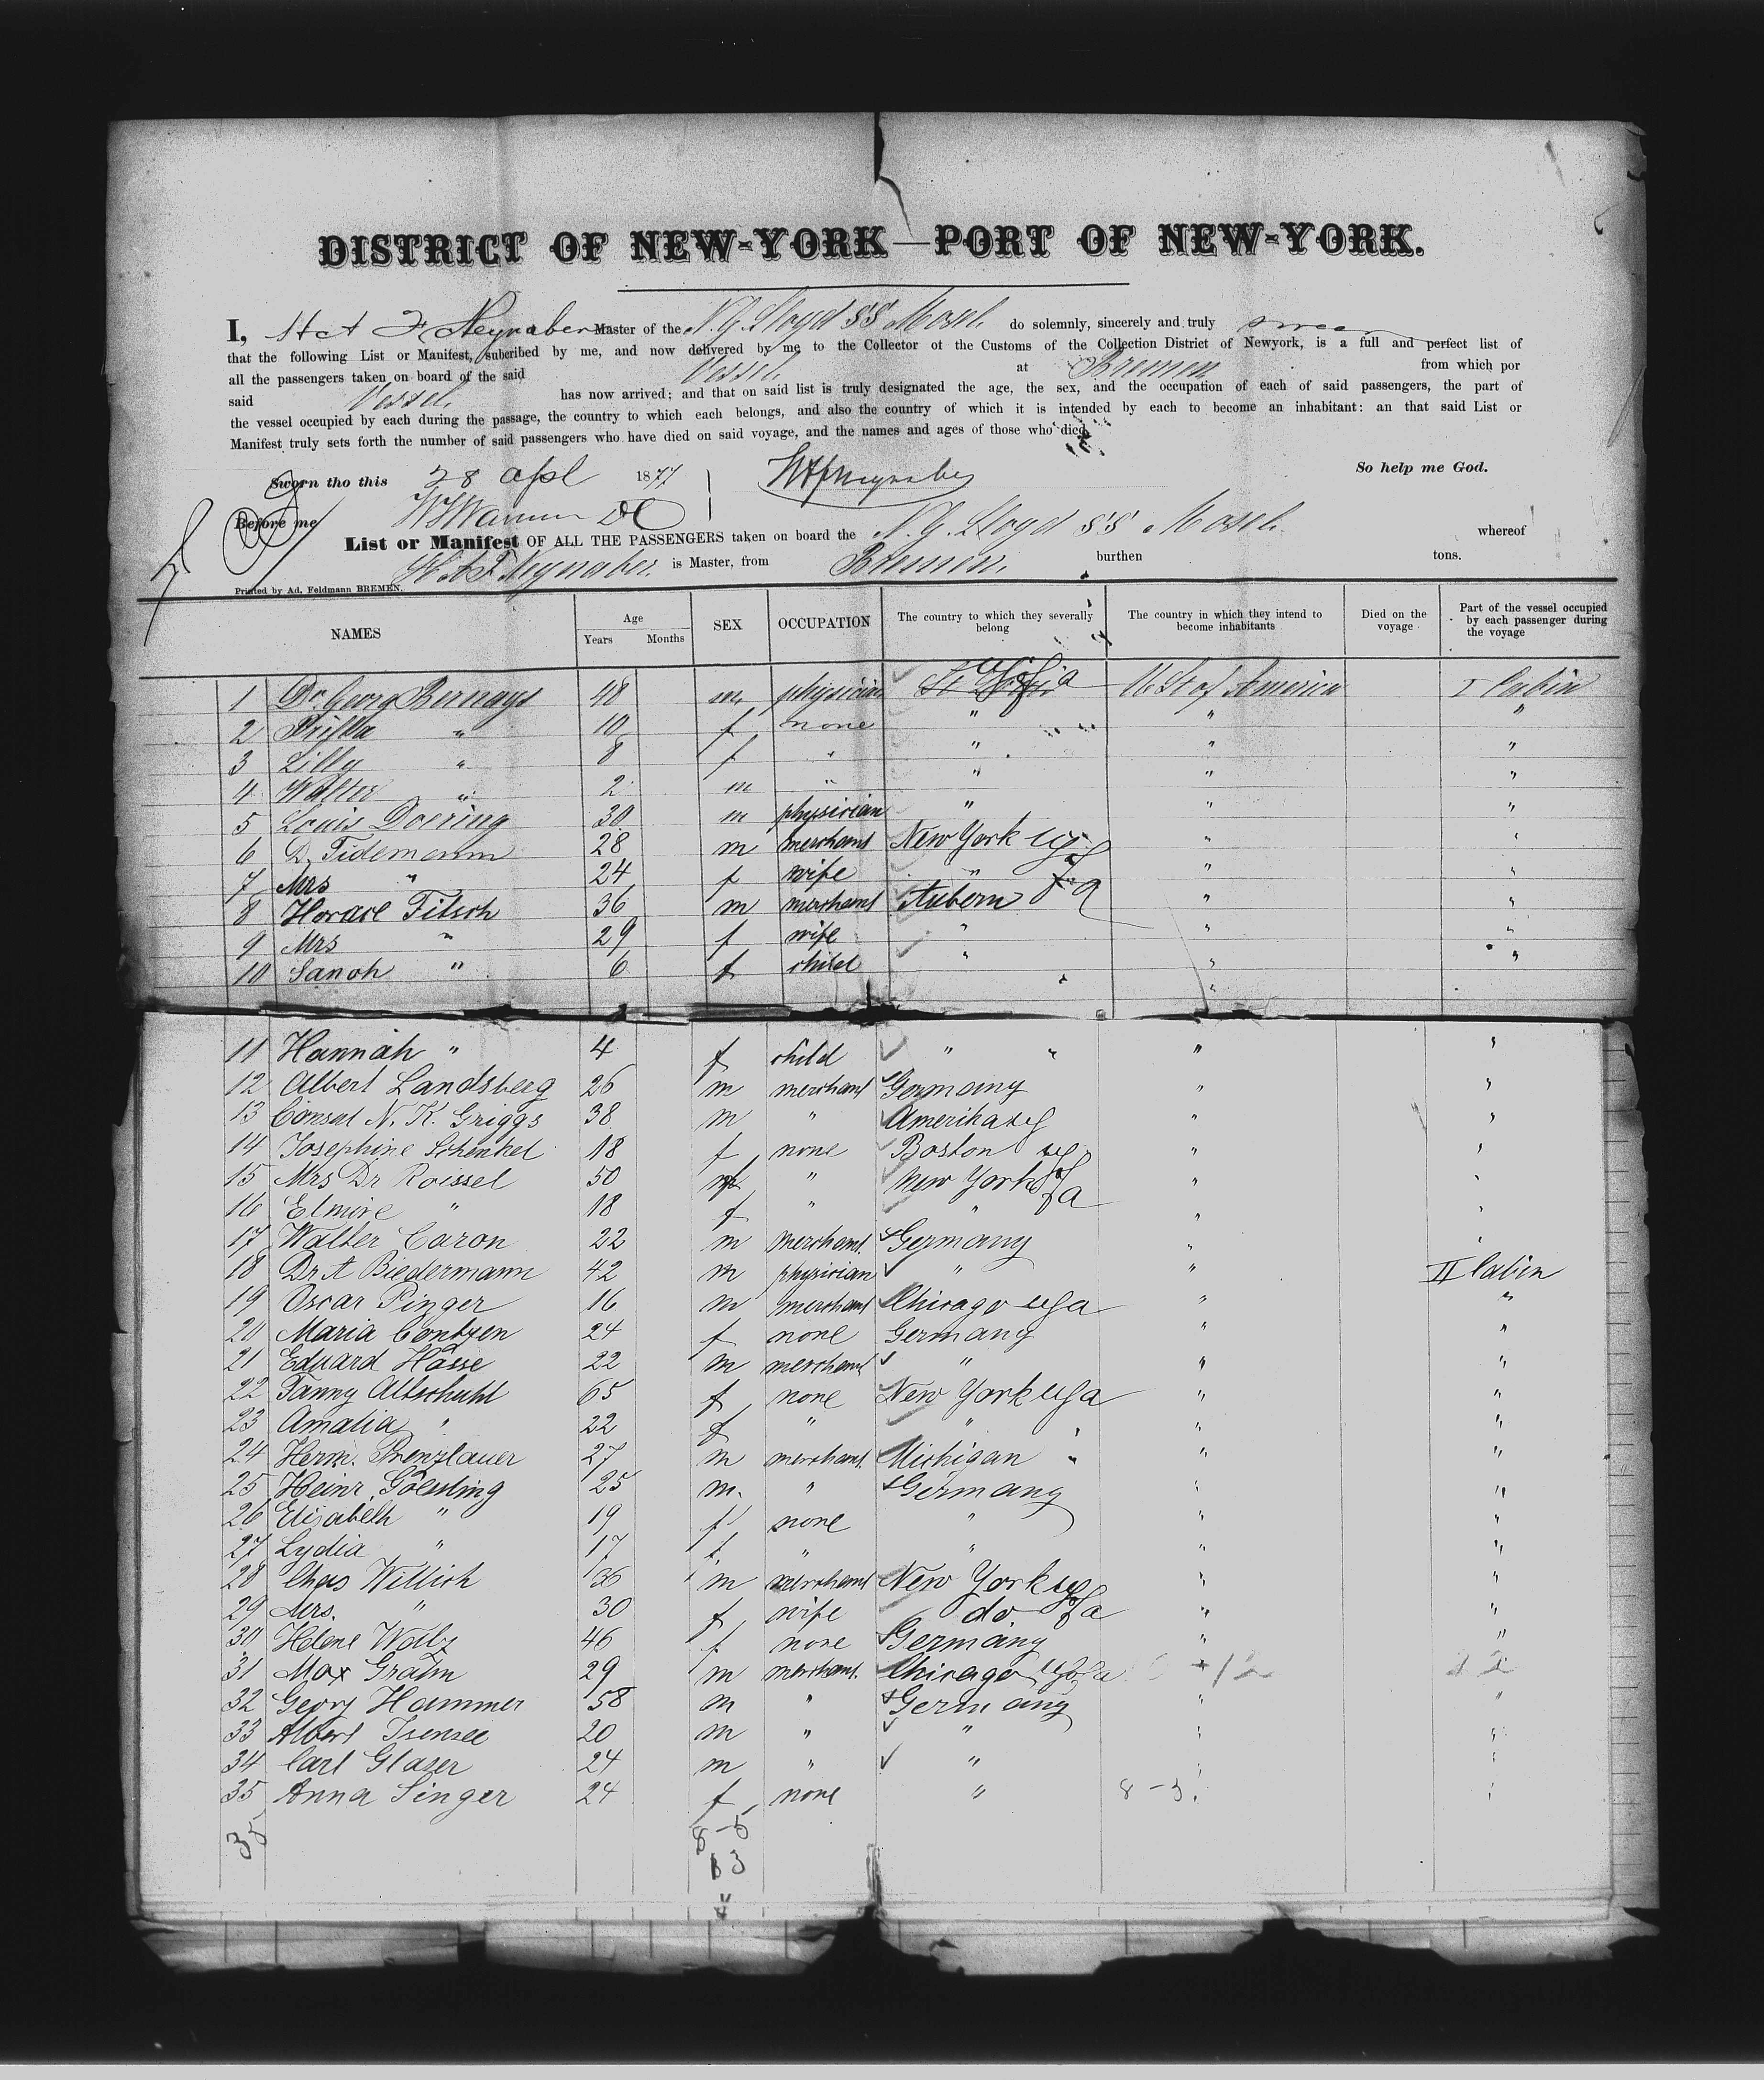 DISTRICT OF NEW-YORK — PORT OF NEW-YORK.
I, H A F Neynaber Master of the N. G. Lloyd SS Mosel do solemnly, sincerely and truly swear
that the following List or Manifest, subcribed by me, and now delivered by me to the Collector of the Customs of the Collection District of Newyork, is a full and perfect list of
all the passengers taken on board of the said Vessel at Bremen from which por
said Vessel has now arrived; and that on said list is truly designated the age, the sex, and the occupation of each of said passengers, the part of
the vessel occupied by each during the passage, the country to which each belongs, and also the country of which it is intended by each to become an inhabitant: an that said List or
Manifest truly sets forth the number of said passengers who have died on said voyage, and the names and ages of those who died
So help me God.
Sworn tho this 28 Apl 1877 HAFNeynaber
Before me
List or Manifest OF ALL THE PASSENGERS taken on board the N. G. Lloyd SS Mosel whereof
H. A. F. Neynaber. is Master, from Bremen. burthen tons.
Printed by Ad. Feldmann BREMEN.
NAMES Age Years Months SEX OCCUPATION The country to which they severally belong The country in which they intend to become inhabitants Died on the voyage Part of the vessel occupied by each passenger during the voyage
1 Dr. Georg Bernays 48 m physician St Louis Usa U St of America I Cabin
2 " 10 f none " " "
3 Lilly " 8 f " " " "
4 Walter " 2 m " " " "
5 Louis Doering 30 m physician " " "
6 D. Tidemann 28 m merchant New York " "
7 Mrs " 24 f wife " " "
8 Horace Fitsch 36 m merchant Auborn " "
9 Mrs " 29 f wife " " "
10 Sanoh " 6 f child " " "
11 Hannah " 4 f child " " " "
12 Albert Landsberg 26 m merchant Germany " "
13 Consul N. K. Griggs 38 m " Amerika " "
14 Josephine Schenkel 18 f none Boston " "
15 Mrs Dr Roissel 50 f " New York " "
16 Elmire " 18 f " " " "
17 Walter Caron 22 m merchant. Germany " "
18 Dr A Biedermann 42 m physician " " II Cabin
19 Oscar Pinger 16 m merchant Chicago Usa " "
20 Maria Contzen 24 f none Germany " "
21 Eduard Hasse 22 m merchant " " "
22 Fanny Altschuhl 65 f none New York Usa " "
23 Amalia " 22 f " " " "
24 Herm. Prenzlauer 27 m merchant. Michigan " " "
25 Heinr. Goessling 25 m. " Germany " "
26 Elisabeth " 19 f none " " "
27 Lydia " 17 f " " " "
28 Chas Willich 36 m merchant New York " "
29 Mrs. " 30 f wife do. " "
30 Helene Walz 46 f none Germany " "
31 Max Grahm 29 m merchant. Chicago Usa
32 Georg Hammer 58 m " Germany " "
33 Albert Isensee 20 m " " " "
34 Carl Glaser 24 m " " " "
35 Anna Singer 24 f none " 8-3. "
35 8-5
13